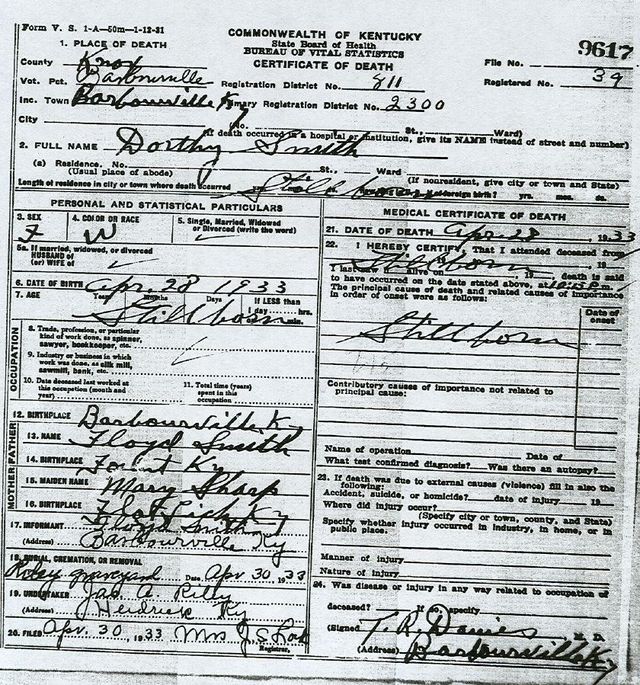 Form V. S. 1-A—50m—1-12-31
COMMONWEALTH OF KENTUCKY
State Board of Health
BUREAU OF VITAL STATISTICS
CERTIFICATE OF DEATH
9617
File No.
Registered No. 39
1. PLACE OF DEATH
County Knox
Vot. Pct. Barbourville Registration District No. 811
Inc. Town Barbourville Ky Primary Registration District No. 2300
City No. St., Ward)
(If death occurred in a hospital or institution, give its NAME instead of street and number)
2. FULL NAME Dorthy Smith
(a) Residence. No. St., Ward
(Usual place of abode) (If nonresident, give city or town and State)
Length of residence in city or town where death occurred foreign birth? yrs. mos. ds.
PERSONAL AND STATISTICAL PARTICULARS
3. SEX 4. COLOR OR RACE 5. Single, Married, Widowed or Divorced (write the word)
F W
5a. If married, widowed, or divorced
HUSBAND of
(or) WIFE of
6. DATE OF BIRTH Apr. 28 1933
7. AGE Years Months Days If LESS than 1 day hrs.
Stillborn
OCCUPATION
8. Trade, profession, or particular kind of work done, as spinner, sawyer, bookkeeper, etc.
9. Industry or business in which work was done, as silk mill, sawmill, bank, etc.
10. Date deceased last worked at this occupation (month and year)
11. Total time (years) spent in this occupation
12. BIRTHPLACE Barbourville, Ky
MOTHER/FATHER
13. NAME Floyd Smith
14. BIRTHPLACE Fount Ky
15. MAIDEN NAME Mary Sharp
16. BIRTHPLACE Flat Lick Ky
17. INFORMANT Floyd Smith
(Address) Barbourville Ky
18. BURIAL, CREMATION, OR REMOVAL
graveyard Date Apr 30 1933
19. UNDERTAKER Jas. A. Riley
(Address) Heidrick Ky
20. FILED Apr. 30, 1933 Mrs J.S.
Registrar.
MEDICAL CERTIFICATE OF DEATH
21. DATE OF DEATH Apr 28 1933
22. I HEREBY CERTIFY, That I attended deceased from
Stillborn 19
I last saw alive on , 19 death is said
to have occurred on the date stated above, at m.
The principal cause of death and related causes of importance
in order of onset were as follows:
Date of onset
Stillborn
Contributory causes of importance not related to
principal cause:
Name of operation Date of
What test confirmed diagnosis? Was there an autopsy?
23. If death was due to external causes (violence) fill in also the
following:
Accident, suicide, or homicide? date of injury 19
Where did injury occur?
(Specify city or town, county, and State)
Specify whether injury occurred in industry, in home, or in
public place.
Manner of injury
Nature of injury
24. Was disease or injury in any way related to occupation of
deceased? If so, specify
(Signed T. R. Davies M. D.
(Address) Barbourville Ky